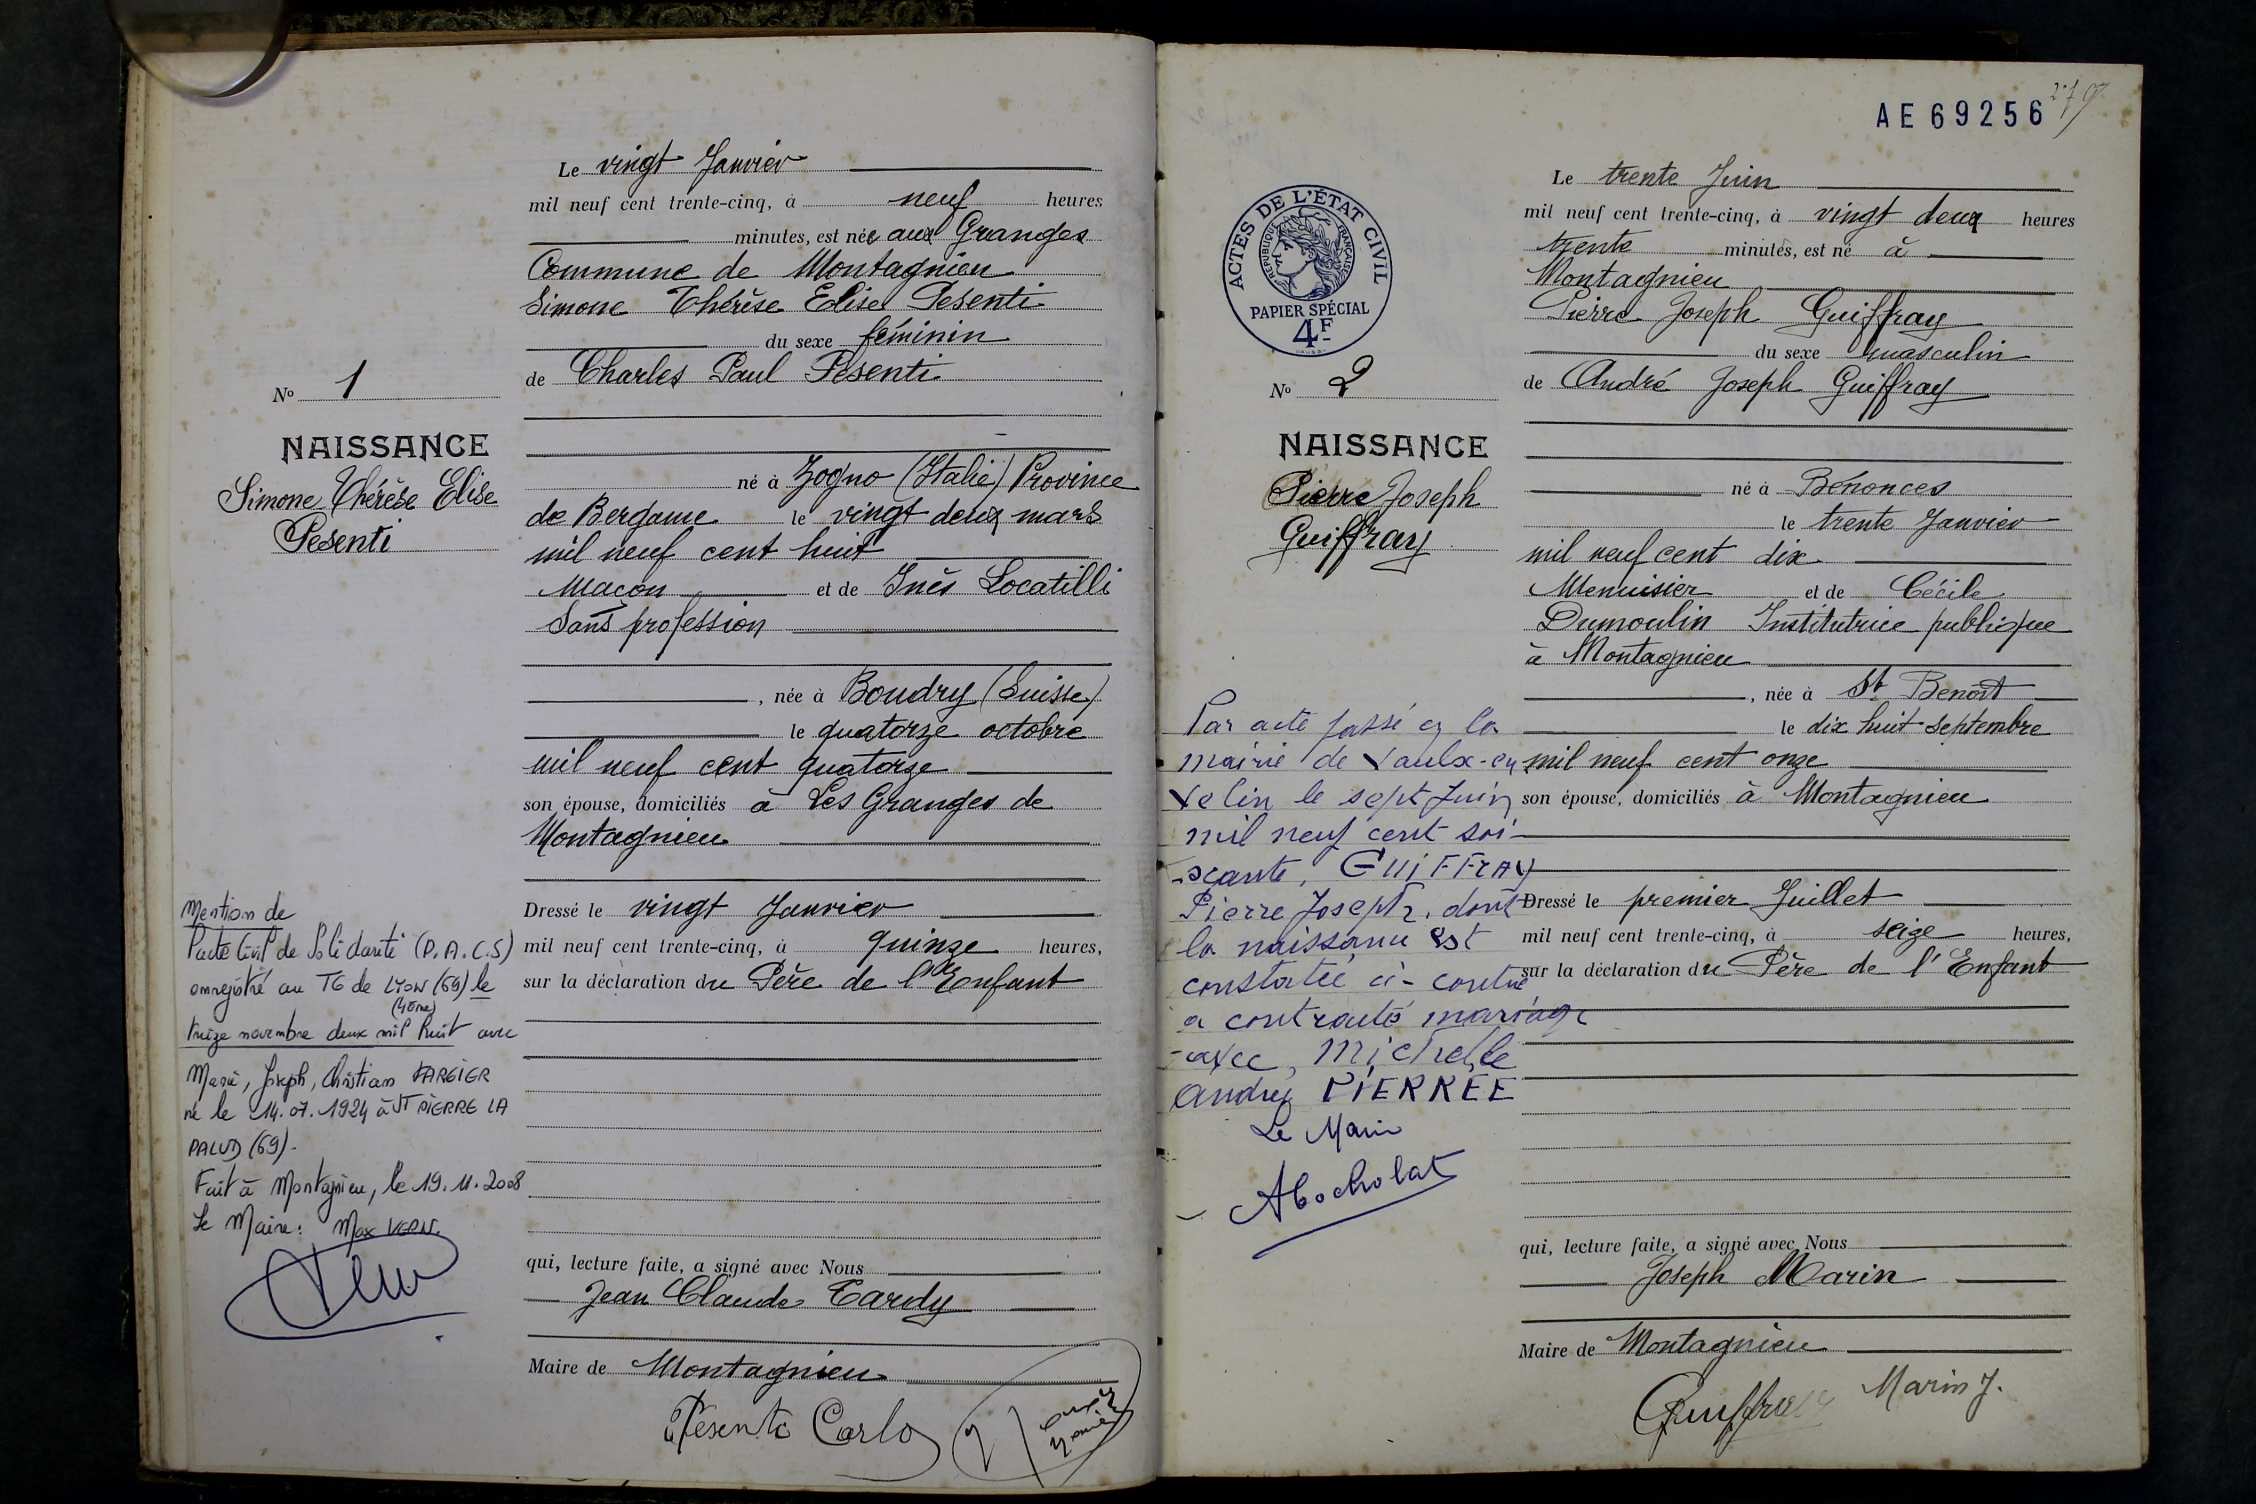 Le vingt Janvier
mil neuf cent trente-cinq, à neuf heures
minutes, est née aux Granges
Commune de Montagnieu
Simone Thérèse Elise Pesenti
du sexe féminin
de Charles Paul Pesenti
né à Zogno (Italie) Province
de Bergame le vingt deux mars
mil neuf cent huit
Maçon et de Inès Locatilli
Sans profession
, née à Boudry (Suisse)
le quatorze octobre
mil neuf cent quatorze
son épouse, domiciliés à Les Granges de
Montagnieu
Dressé le vingt Janvier
mil neuf cent trente-cinq, à quinze heures,
sur la déclaration du Père de l'Enfant
qui, lecture faite, a signé avec Nous
Jean Claude Tardy
Maire de Montagnieu
Pesenti Carlo
No 1
NAISSANCE
Simone Thérèse Elise
Pesenti
Mention de
Pacte Civil de Solidarité (P.A.C.S)
enregistré au TG de LYON (69) le
treize novembre deux mil huit avec
Marie, Joseph, Christian FARGIER
né le 14.07.1924 à ST PIERRE LA
PALUD (69).
Fait à Montagnieu, le 19.11.2008
Le Maire: Max VERN.
AE 69256
ACTES DE L'ÉTAT CIVIL
RÉPUBLIQUE FRANÇAISE
PAPIER SPÉCIAL
4F
No 2
NAISSANCE
Pierre Joseph
Guiffray
Par acte passé en la
mairie de Vaulx-en
Velin le sept Juin
mil neuf cent soi-
-xante, GUIFFRAY
Pierre Joseph, dont
la naissance est
constatée ci-contre
a contracté mariage
avec, Michelle
Andrée PIERREE
Le Maire
Le trente Juin
mil neuf cent trente-cinq, à vingt deux heures
trente minutes, est né à
Montagnieu
Pierre Joseph Guiffray
du sexe masculin
de André Joseph Guiffray
né à Bénonces
le trente Janvier
mil neuf cent dix
Menuisier et de Cécile
Dumoulin Institutrice publique
à Montagnieu
, née à St Benoît
le dix huit septembre
mil neuf cent onze
son épouse, domiciliés à Montagnieu
Dressé le premier Juillet
mil neuf cent trente-cinq, à seize heures,
sur la déclaration du Père de l'Enfant
qui, lecture faite, a signé avec Nous
Joseph Marin
Maire de Montagnieu
Guiffray Marin J.